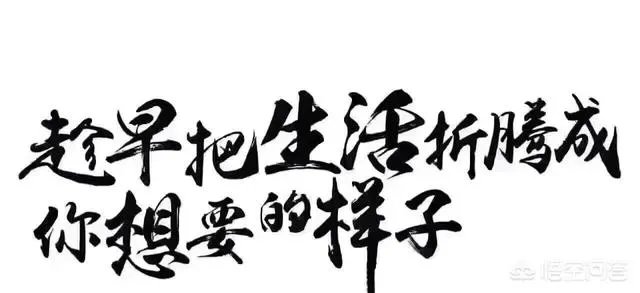 趁早把生活折腾成
你想要的样子
悟空问答